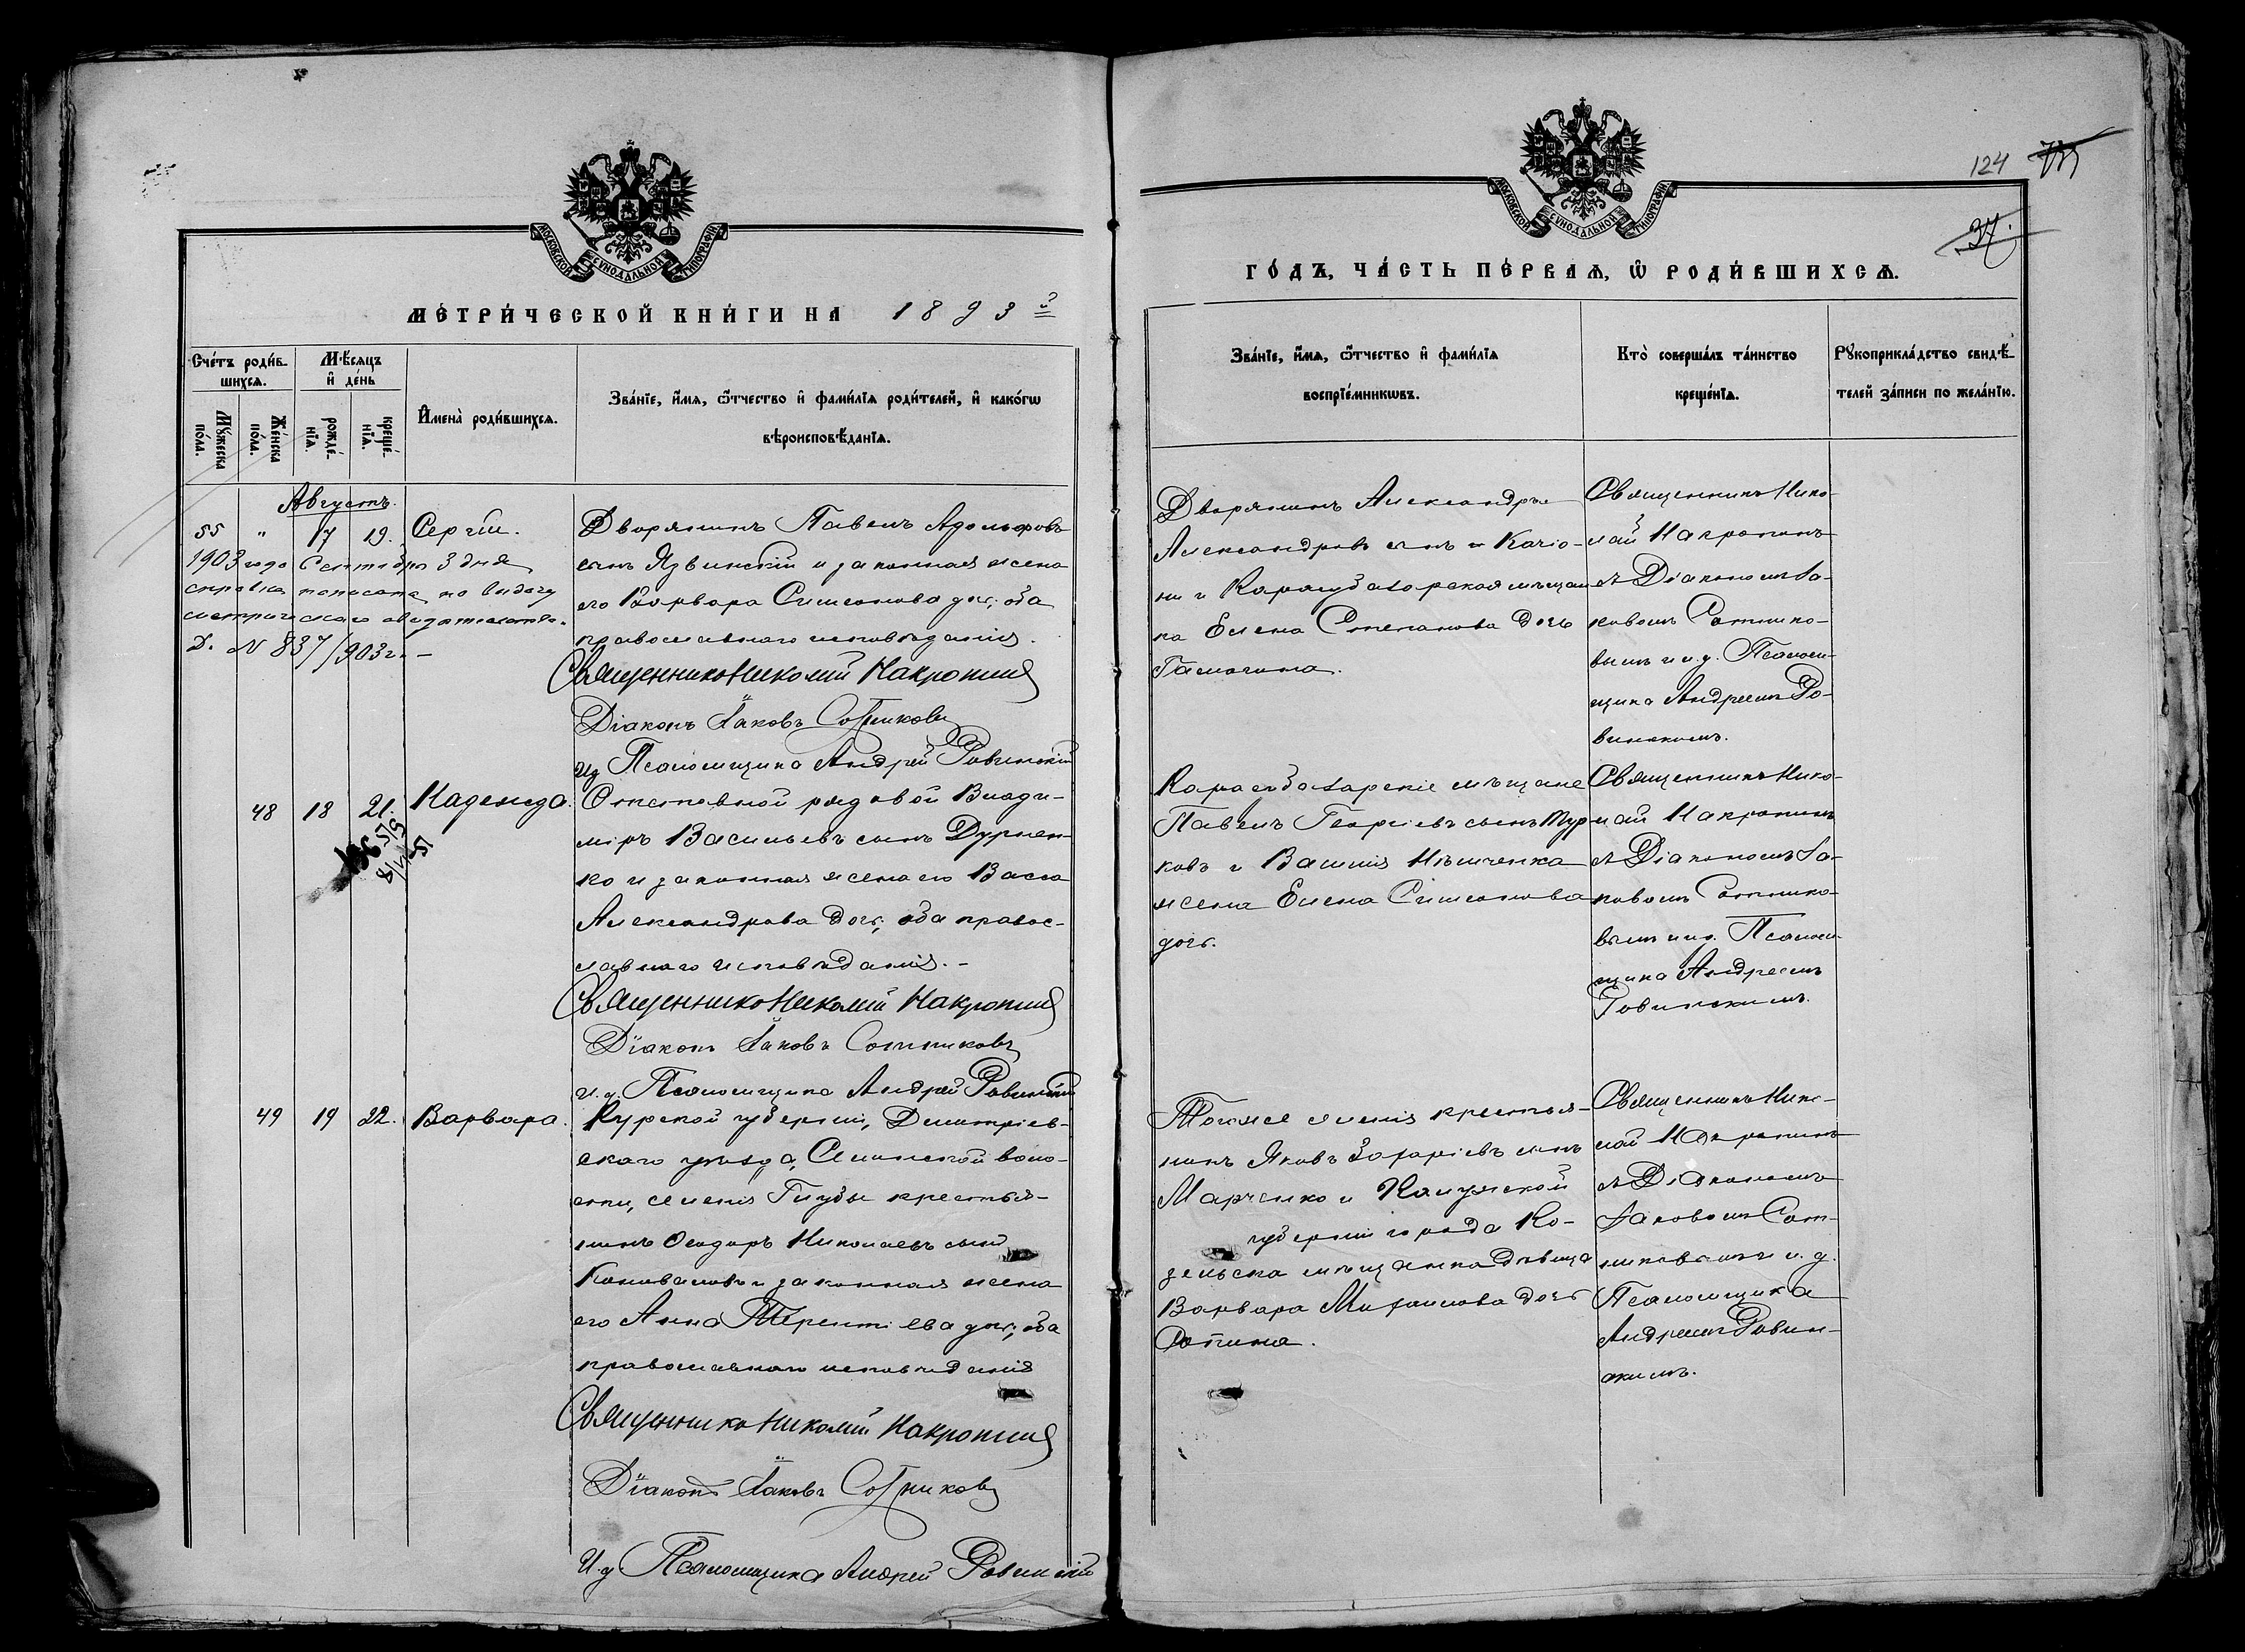 МОСКОВСКОЙ СѴНОДАЛЬНОЙ ТИПОГРАФІИ
МЕТРИ́ЧЕСКОЙ КНИ́ГИ НА 1893
Сче́тъ роди́в-
шихся.
Мѣ́сяцъ
и҆ де́нь
Мꙋ́жеска
по́ла.
Же́нска
по́ла.
рожде́-
нїя.
креще́-
нїя.
И҆мена̀ роди́вшихся.
Зва́нїе, и҆́мя, ѻ҆́тчество и҆ фами́лїя роди́телей, и҆ како́гѡ
вѣроисповѣ́данїя.
Августъ.
55 " 17 19. Сергій.
1903 года Сентября 3 дня
справка написана по выдачу
метрическаго свидѣтельства.
Д. N 837/903 г. –
Дворянинъ Павелъ Адольфовъ
сынъ Язвинскій и законная жена
его Варвара Симеонова доч; оба
православнаго исповѣданія.
Священникъ Николай Накропинъ
Діаконъ Іаковъ Сотниковъ
ид Псаломщика Андрей Ровинскій
48 18 21. Надежда.
Отставной рядовой Влади-
міръ Васильевъ сынъ Дурнен-
ко и законная жена его Васса
Александрова доч; оба правос-
лавнаго исповѣданія. –
Священникъ Николай Накропинъ
Діаконъ Іаковъ Сотниковъ
и.д. Псаломщика Андрей Ровинскій
49 19 22. Варвара.
Курской губерніи, Димитріев-
скаго уѣзда, волос-
сти, селенія Глубы крестья-
нинъ Ѳеодоръ Николаевъ сынъ
Коноваловъ и законная жена
его Анна Терентіева доч; оба
православнаго исповѣданія
Священникъ Николай Накропинъ
Діаконъ Іаковъ Сотниковъ
И.д Псаломщика Андрей Ровинскій
МОСКОВСКОЙ СѴНОДАЛЬНОЙ ТИПОГРАФІИ
124
37.
ГО́ДЪ, ЧА́СТЬ ПЕ́РВАЯ, Ѡ҆ РОДИ́ВШИХСЯ.
Зва́нїе, и҆́мя, ѻ҆́тчество и҆ фами́лїя
воспрїе́мникѡвъ.
Кто̀ соверша́лъ та́инство
креще́нїя.
Рꙋкоприкла́дство свидѣ́-
телей за́писи по жела́нїю.
Дворянинъ Александръ
Александровъ сынъ Качіо-
ни и Карасубазарская мѣщан-
ка Елена Степанова дочь
Священникъ Нико-
лай Накропинъ
съ Діакономъ Іа-
ковомъ Сотнико-
вымъ и и.д. Псалом-
щика Андреемъ Ро-
винскимъ.
Карасубазарскіе мѣщане
Павелъ Георгіевъ сынъ Тур-
ковъ и Нѣмченка
жена Елена Симеонова
дочь.
Священникъ Нико-
лай Накропинъ
съ Діакономъ Іа-
ковомъ Сотнико-
вымъ и ид. Псалом-
щика Андреемъ
Ровинскимъ.
Тогоже селенія крестья-
нинъ Яковъ Захаріевъ сынъ
Марченко и Калужской
губерніи города Ко-
зельска мѣщанка дѣвица
Варвара Михаилова дочь
Священникъ Нико-
лай Накропинъ
съ Діакономъ
Іаковомъ Сот-
никовымъ и и.д.
Псаломщика
Андреемъ Ровин-
скимъ.